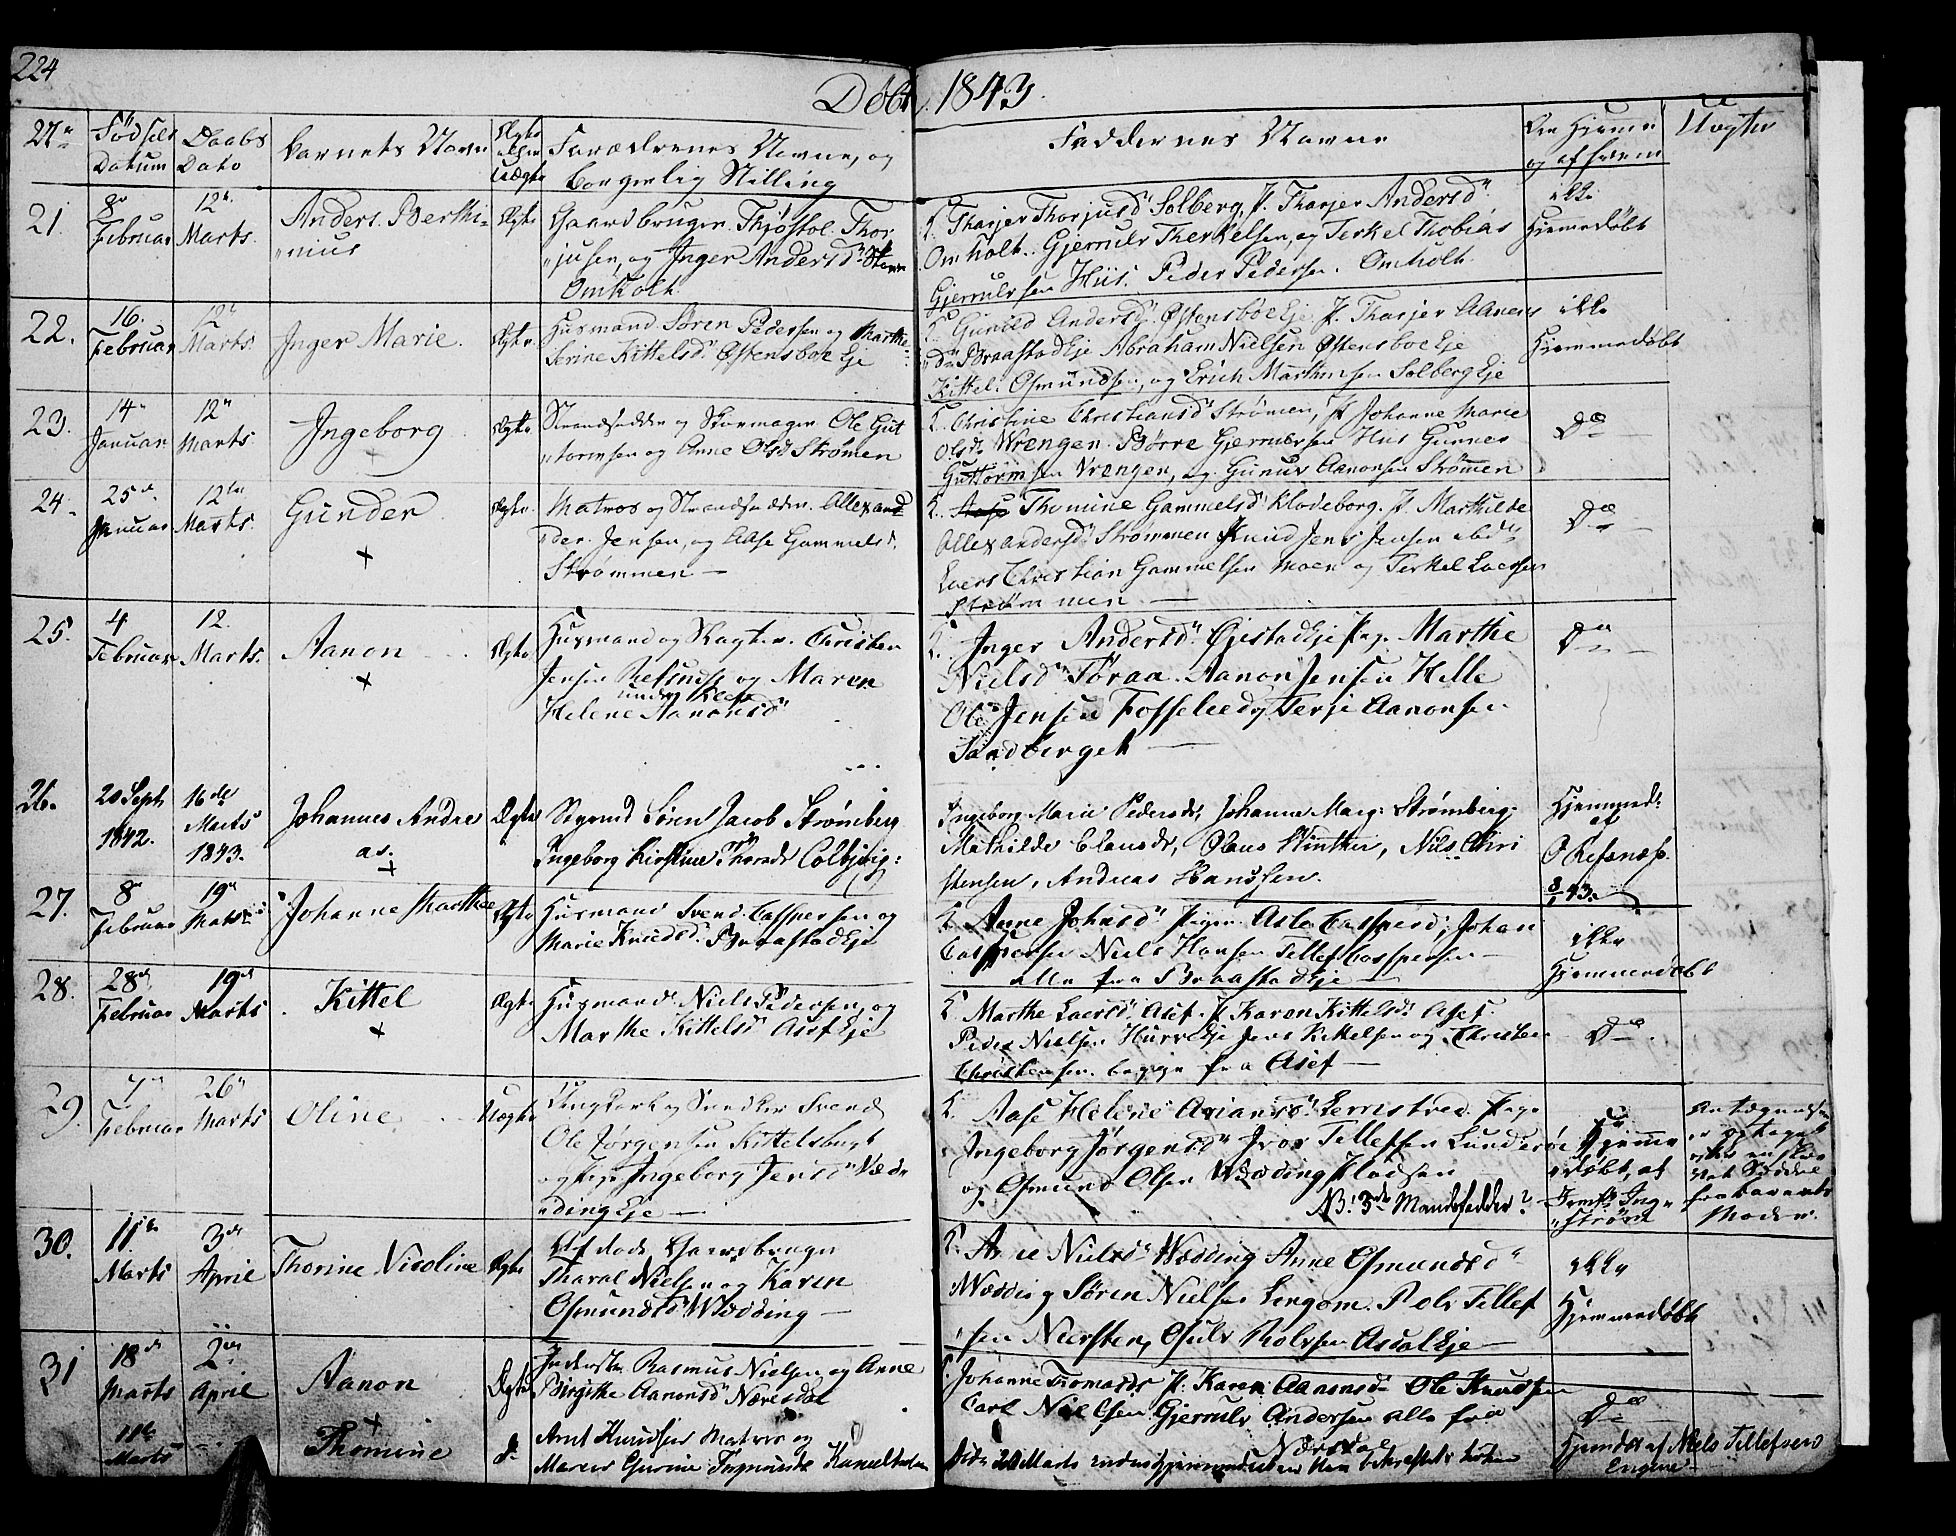 224
Døbt 1843.
Nr. Fødsels Datum Daabs Dato Barnets Navn Ægte eller uægte Forældrenes Navne, og borgerlig Stilling Faddernes Navne Om Hjemme og af hvem Uægte
21. 8de Februar 12te Marts. Anders Berthi-
nius Ægte Gaardbruger Thjøstol Thor-
jusen, og Inger Andersd.
Omholt
K. Tharjer Thorjusd. Solberg, P. Tharjer Andersd.
Omholt. Gjerrulv Therkelsen, og Terkel Tobias
Gjerrulvsen Hiis. Peder Pedersen. Omholt
ikke
Hjemmedøbt
22. 16. Februar 12te Marts. Inger Marie. Ægte. Husmand Søren Pedersen og Marthe
Serine Kittelsd. Østensboe Eje
K. Gunild Andersd. Østensboe Eje P. Tharjer
Braastad Eje Abraham Nielsen Østensboe Eje
Kittel Osmundsen, og Erich Mathisen Solberg Eje
ikke
Hjemmedøbt
23. 14 Januar 12te Marts. Ingeborg Ægte. Strandsidder og Ole Gut
tormsen og Anne Olsd Strømen
K. Christine Christiansd. Strømen, P. Johanne Marie
Olsd. Vrengen. Børre Gjerrulvsen Hiis Gunner
Guttormsen Vrengen, og Gunuv Aanonsen Strømmen
Do
24. 25de Januar 12te Marts. Gunder Ægte. Matros og Strandsidder. Allexand
der Jensen, og Aase Gammelsd.
Strømmen
K. Thomine Gammelsd. Klodeborg. P. Mathilde
Allexandersd. Strømmen Knud Jens Jensen ibd.
Lars Christian Gammelsen Moen og Terkel Larsen
Strømmen
Do
25. 4 Februar 12. Marts. Aanon Ægte Husmand og Christen
Jensen Refsnes og Maren
under Klev
Helene Aanonsd.
K. Inger Andersd. Gjestad Eje Pige. Marthe
Nielsd. Føraa. Aanon Jensen Helle
Ole Jensen Fosselie og Terje Aanonsen
Sandberget
Do
26. 20 Sept 1842. 16de Marts 1843. Johannes Andre
as. Ægte Søren Jacob Strømberg
Ingeborg Kirstine Colbjørg:
Ingeborg Marie Pedersd, Johanne Marg: Strømberg,
Mathilde Clausd, Olaus Winther, Nils Chri
stensen, Andreas Hanssen.
Hjemmed:
af
O Refsnes.
8/1 43.
27. 8de Februar 19de Marts Johanne Marthea Ægte Husmand Svend Caspersen og
Marie Knudsd. Braastad Eje
K. Anne Johnsd. Pigen Asle Caspersd, Johan
Caspersen Niels Hansen Tellef Caspersen
alle fra Braastad Eje
ikke
Hjemmedøbt
28. 28de Februar 19de Marts Kittel Ægte Husmand Niels Pedersen og
Marthe Kittelsd. Asef Eje
K. Marthe Larsd. Asef. P. Karen Kittelsd. Asef.
Peder Nielsen Hurv Eje Jens Kittelsen og Christen
Christensen begge fra Asef
Do
29. 7de Februar 26de Marts Oline Uægte Ungkarl og Snedker Svend
Ole Jørgensen Kittelsbugt
og Pige Ingeborg Jensd. Wæd-
ding Eje
K. Aase Helene Arians. Lerrestved. Pige
Ingeborg Jørgensd. Iver Tellefsen Lunderøe
og Osmund Olsen Wædding Kladsen
NB! 3de Mandsfadder?
Hjemme
døbt, af
Jomfr. Ing-
strøm
Antegnelsen
er optaget
efter en
fra Barnets
Moder.
30. 11te Marts 3de April Thorine Nicoline Ægte Afdøde Gaardbruger
Tharal Nielsen og Karen
Osmundsd. Wædding
K. Anne Nielsd. Wædding Anne Osmundsd.
Wædding Søren Nielsen Longom. Rolv Tellef
sen Nersten, Osulv Rolvsen Asdal Eje
ikke
Hjemmedøbt
31 18de Marts 2den April Aanon Ægte Inderste Rasmus Nielsen og Anne
Birgithe Aanonsd. Næresdal
K. Johanne Thomasd. P. Karen Aanonsd. Ole Knudsen
Carl Nielsen Gjerrulv Andersen alle fra
Næresdal
Do
11te Marts Thomine do Arnt Knudsen Matros og
Maren Gurine
Hjemdøbt af Niels Tellefsen
Engene